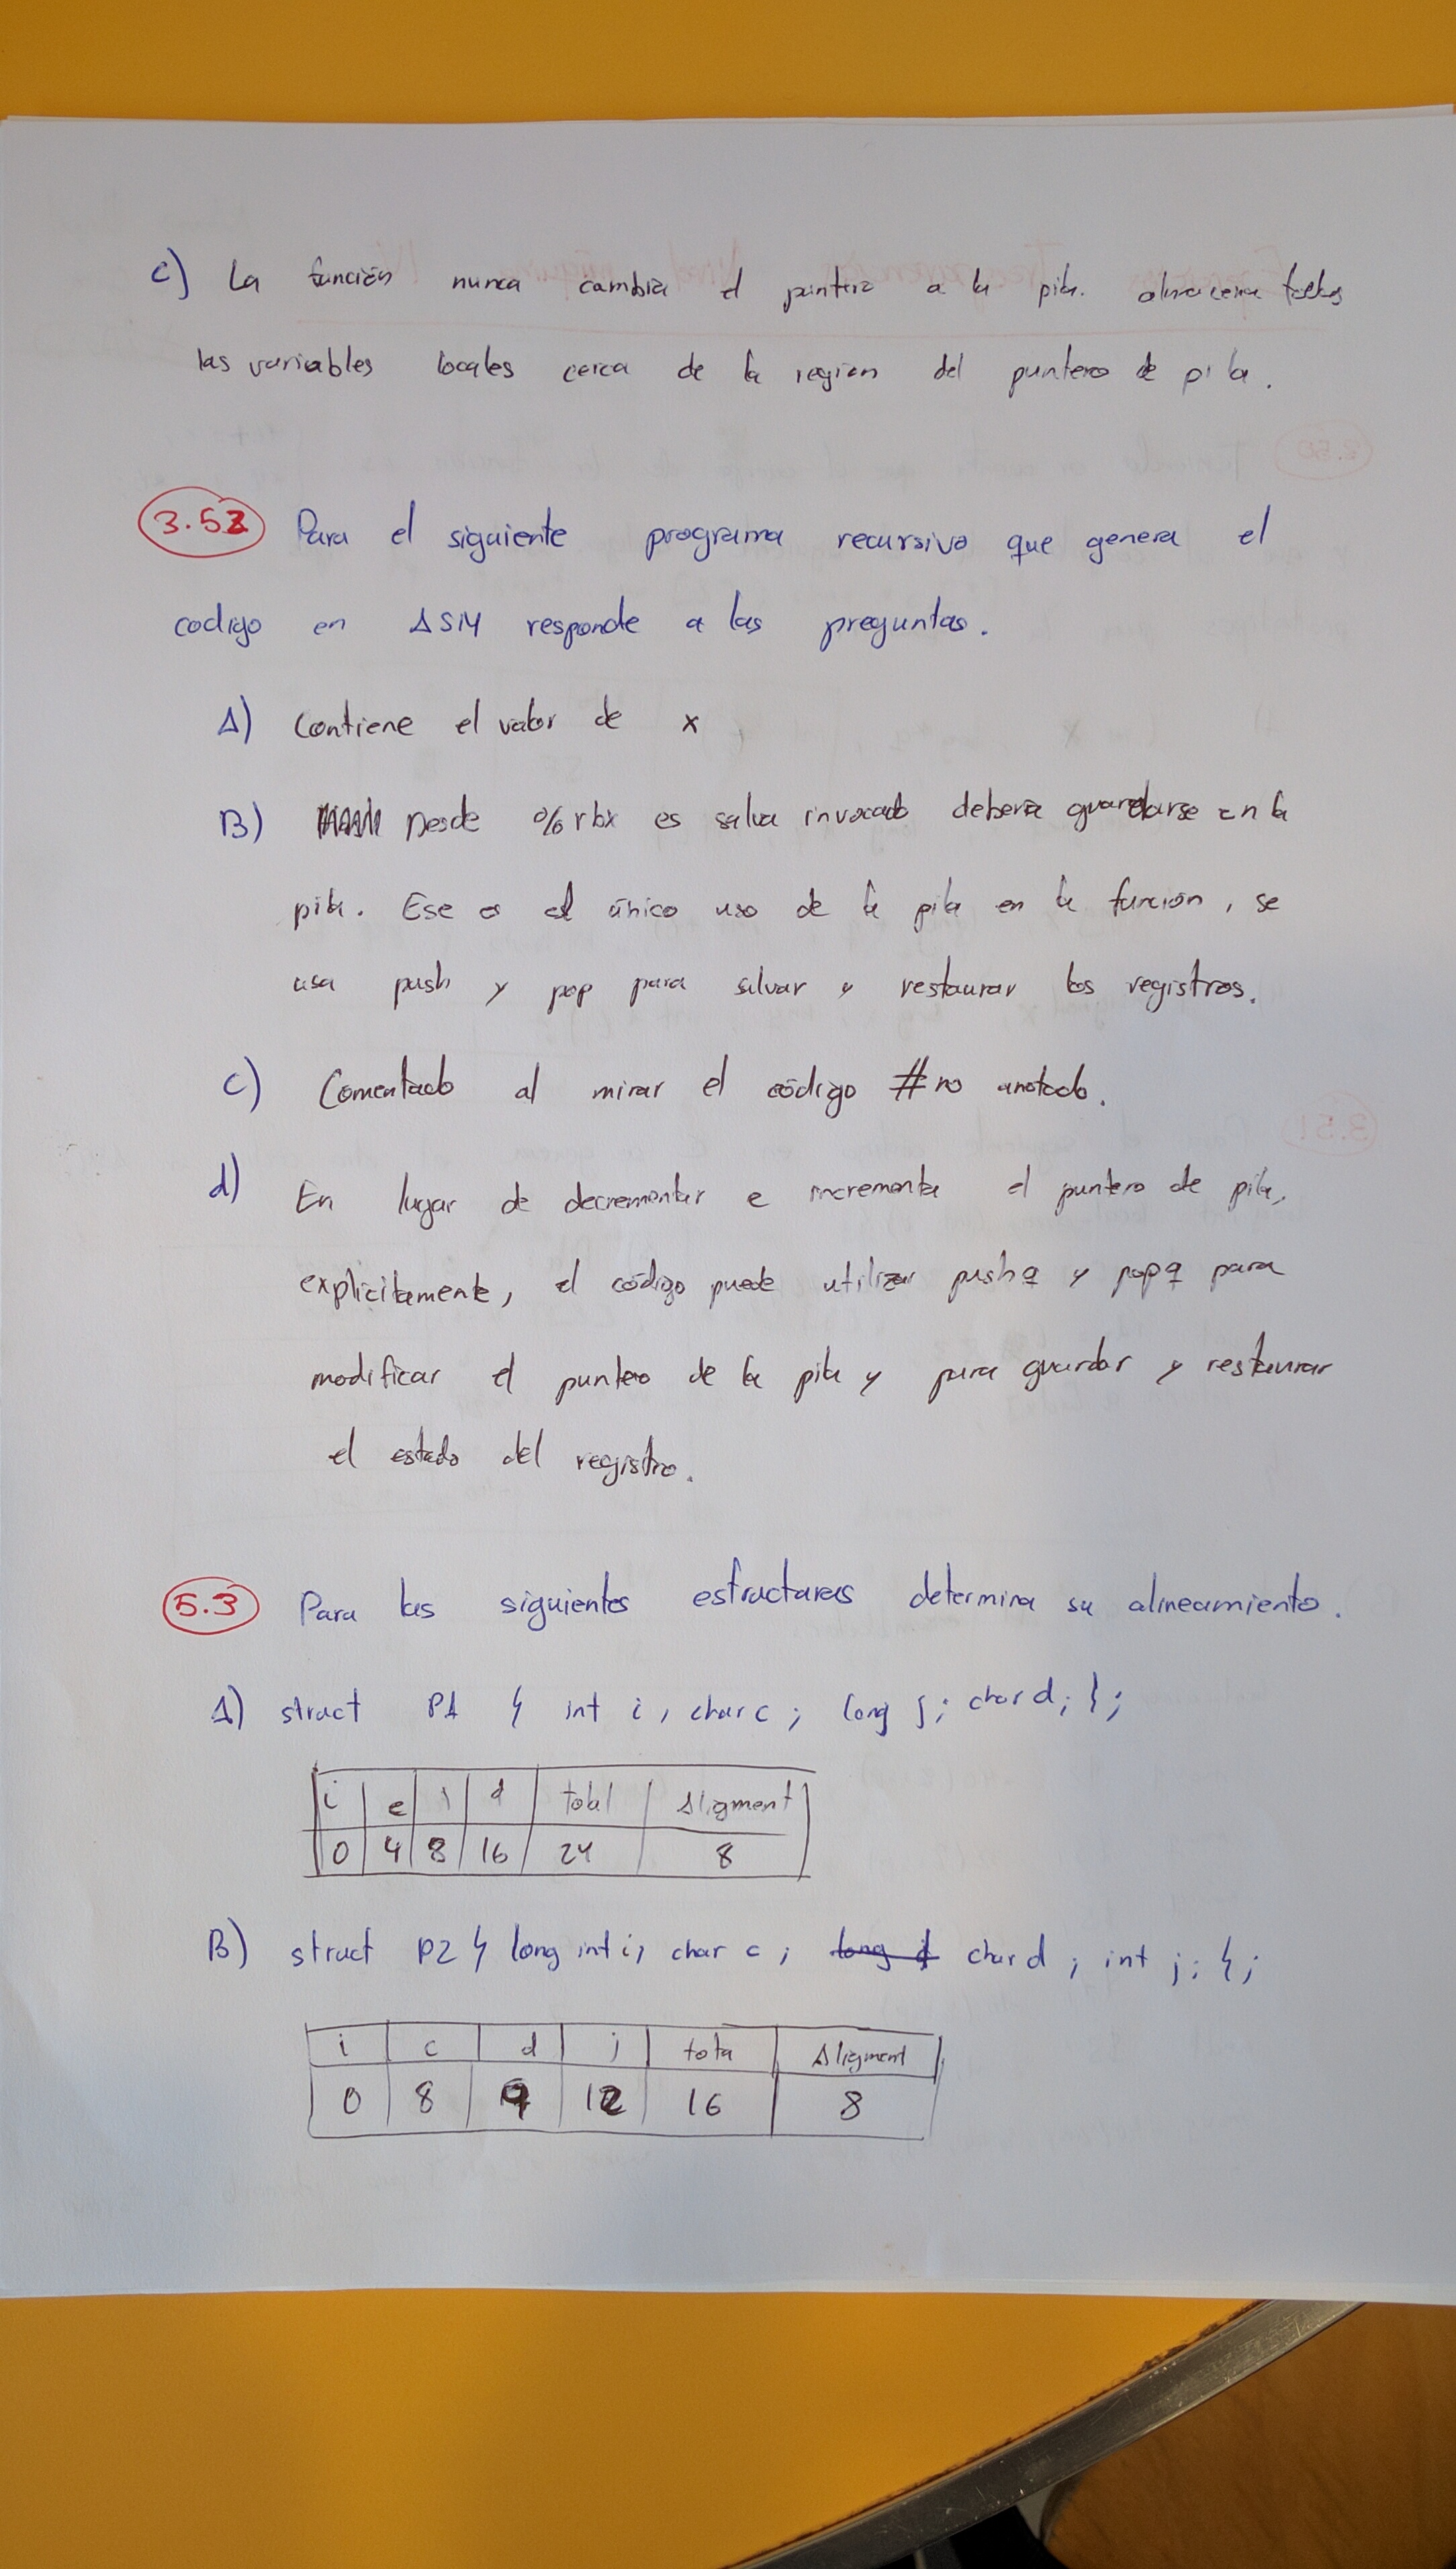 c) La función nunca cambia el puntero a la pila. almacena todas
las variables locales cerca de la region del puntero de pila.
3.52 Para el siguiente programa recursivo que genera el
codigo en ASM responde a las preguntas.
A) Contiene el valor de x
B) Desde %rbx es salva invocado deberia guardarse en la
pila. Ese es el único uso de la pila en la función, se
usa push y pop para salvar y restaurar los registros.
C) Comentado al mirar el código #no anotado.
d) En lugar de decrementar e incrementa el puntero de pila,
explicitamente, el código puede utilizar pushq y popq para
modificar el puntero de la pila y para guardar y restaurar
el estado del registro.
5.3 Para las siguientes estructuras determina su alineamiento.
A) struct P1 { int i, char c; long j; char d; };
i c j d total Aligment
0 4 8 16 24 8
B) struct P2 { long int i, char c; char d; int j; };
i c d j tota Aligment
0 8 9 12 16 8